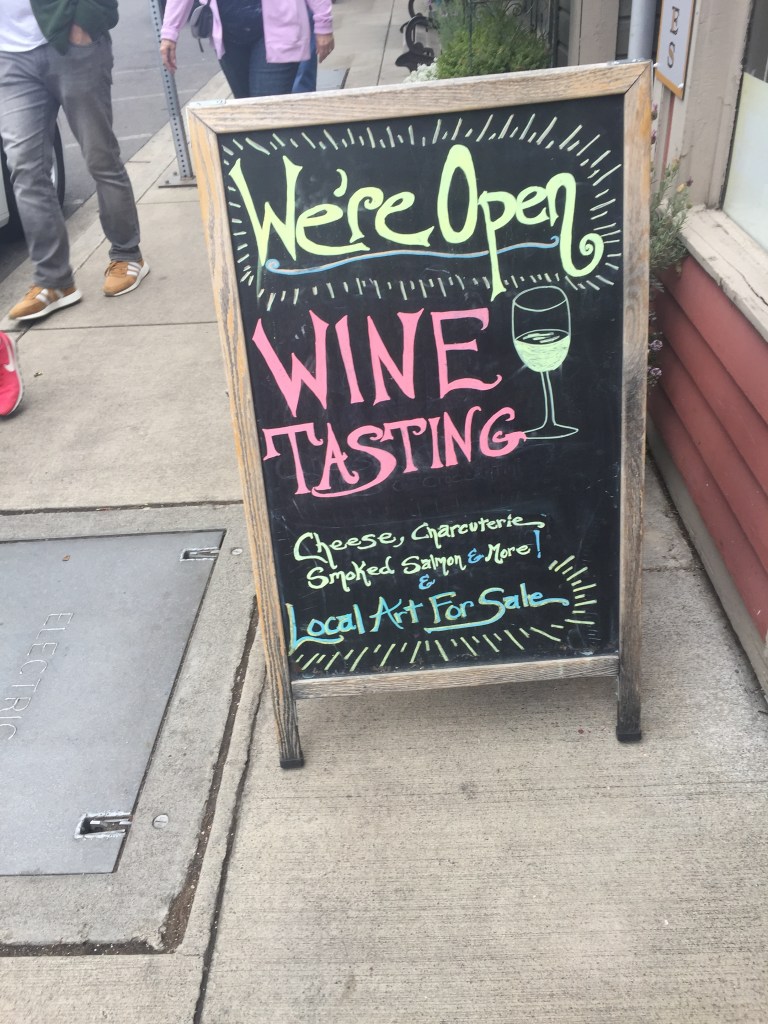 We're Open
WINE
TASTING
Cheese, Charcuterie
Smoked Salmon & More!
&
Local Art For Sale
ELECTRIC
E
S